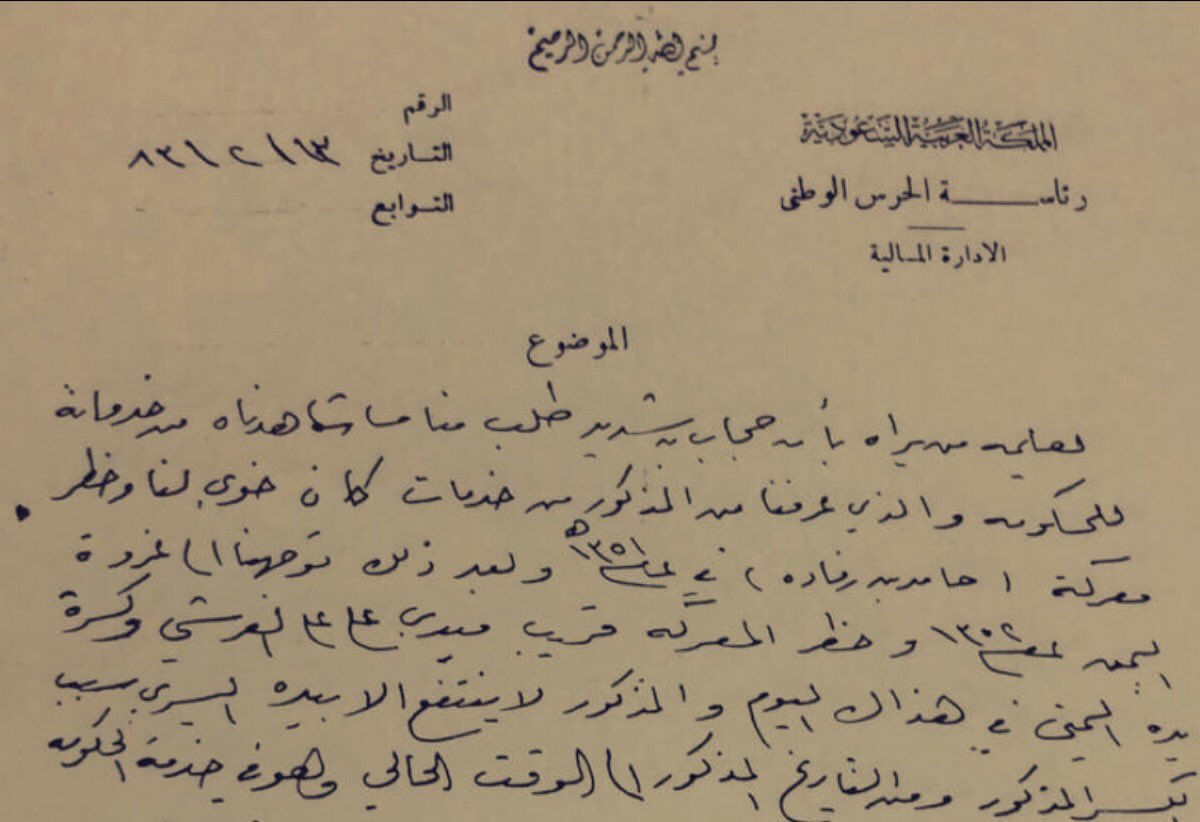 بسم الله الرحمن الرحيم
المملكة العربية السعودية
رئاسة الحرس الوطني
الادارة المالية
الرقم
التاريخ ٨٣/٢/١٣
التوابع
الموضوع
يعلمه من يراه بأن حجاب بن شديد طلب منا ما شاهدناه من خدماته
للحكومه والذي عرفنا من المذكور من خدمات كان خوي لنا وخظر
معركة ( حامد بن رفاده ) في عام ١٣٥١ه وبعد ذلك توجهنا الى غزوة
اليمن عام ١٣٥٢ وحظر المعركه قريب ميدي وكسرة
يده اليمنى في هذاك اليوم والمذكور لا ينتفع الا بيده اليسرى بسبب
الكسر المذكور ومن التاريخ المذكور الى الوقت الحالي وهو في خدمة الحكومه